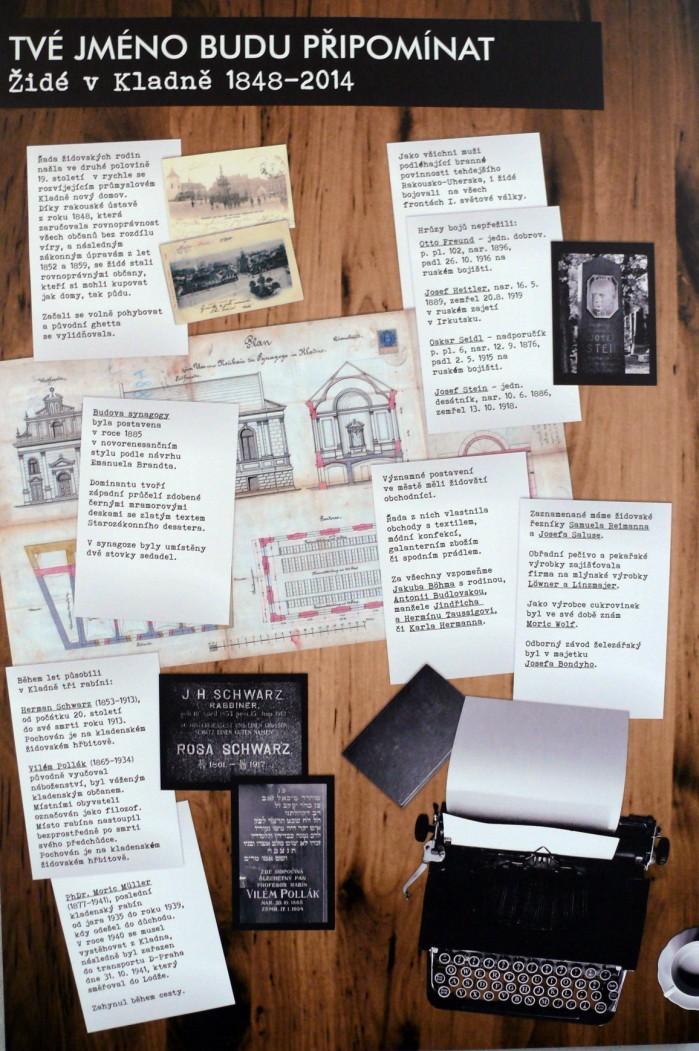 TVÉ JMÉNO BUDU PŘIPOMÍNAT
Židé v Kladně 1848–2014
Řada židovských rodin
našla ve druhé polovině
19. století v rychle se
rozvíjejícím průmyslovém
Kladně nový domov.
Díky rakouské ústavě
z roku 1848, která
zaručovala rovnoprávnost
všech občanů bez rozdílu
víry, a následným
zákonným úpravám z let
1852 a 1859, se židé stali
rovnoprávnými občany,
kteří si mohli kupovat
jak domy, tak půdu.
Začali se volně pohybovat
a původní ghetta
se vylidňovala.
Jako všichni muži
podléhající branné
povinnosti tehdejšího
Rakousko-Uherska, i židé
bojovali na všech
frontách I. světové války.
Hrůzy bojů nepřežili:
Otto Freund – jedn. dobrov.
p. pl. 102, nar. 1896,
padl 26. 10. 1916 na
ruském bojišti.
Josef Heitler, nar. 16. 5.
1889, zemřel 20.8. 1919
v ruském zajetí
v Irkutsku.
Oskar Seidl – nadporučík
p. pl. 6, nar. 12. 9. 1876,
padl 2. 5. 1915 na
ruském bojišti.
Josef Stein – jedn.
desátník, nar. 10. 6. 1886,
zemřel 13. 10. 1918.
JOSEF
STEIN
Plan
Budova synagogy
byla postavena
v roce 1885
v novorenesančním
stylu podle návrhu
Emanuela Brandta.
Dominantu tvoří
západní průčelí zdobené
černými mramorovými
deskami se zlatým textem
Starozákonního desatera.
V synagoze byly umístěny
dvě stovky sedadel.
Významné postavení
ve městě měli židovští
obchodníci.
Řada z nich vlastnila
obchody s textilem,
módní konfekcí,
galanterním zbožím
či spodním prádlem.
Za všechny vzpomeňme
Jakuba Böhma s rodinou,
Antonii Budlovskou,
manžele Jindřicha
a Hermínu Taussigovi,
či Karla Hermanna.
Zaznamenané máme židovské
řezníky Samuela Reimanna
a Josefa Saluse.
Obřadní pečivo a pekařské
výrobky zajišťovala
firma na mlýnské výrobky
Löwner a Linzmajer.
Jako výrobce cukrovinek
byl ve své době znám
Moric Wolf.
Odborný závod železářský
byl v majetku
Josefa Bondyho.
Během let působili
v Kladně tři rabíni:
Herman Schwarz (1853–1913),
od počátku 20. století
do své smrti roku 1913.
Pochován je na kladenském
židovském hřbitově.
Vilém Pollák (1865–1934)
původně vyučoval
náboženství, byl váženým
kladenským občanem.
Místními obyvateli
označován jako filozof.
Místo rabína nastoupil
bezprostředně po smrti
svého předchůdce.
Pochován je na kladenském
židovském hřbitově.
J. H. SCHWARZ
RABBINER,
ROSA SCHWARZ
1861. – 1917.
ZDE ODPOČÍVÁ
ŠLECHETNÝ PAN
PROFESOR RABÍN
VILÉM POLLÁK
PhDr. Moric Müller
(1877–1941), poslední
kladenský rabín
od jara 1935 do roku 1939,
kdy odešel do důchodu.
V roce 1940 se musel
vystěhovat z Kladna,
následně byl zařazen
do transportu D-Praha
dne 31. 10. 1941, který
směřoval do Lodže.
Zahynul během cesty.